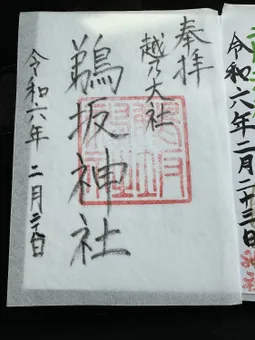 令和六年二月二十三日
奉拝
越乃大社
鵜坂神社
令和六年 二月 日